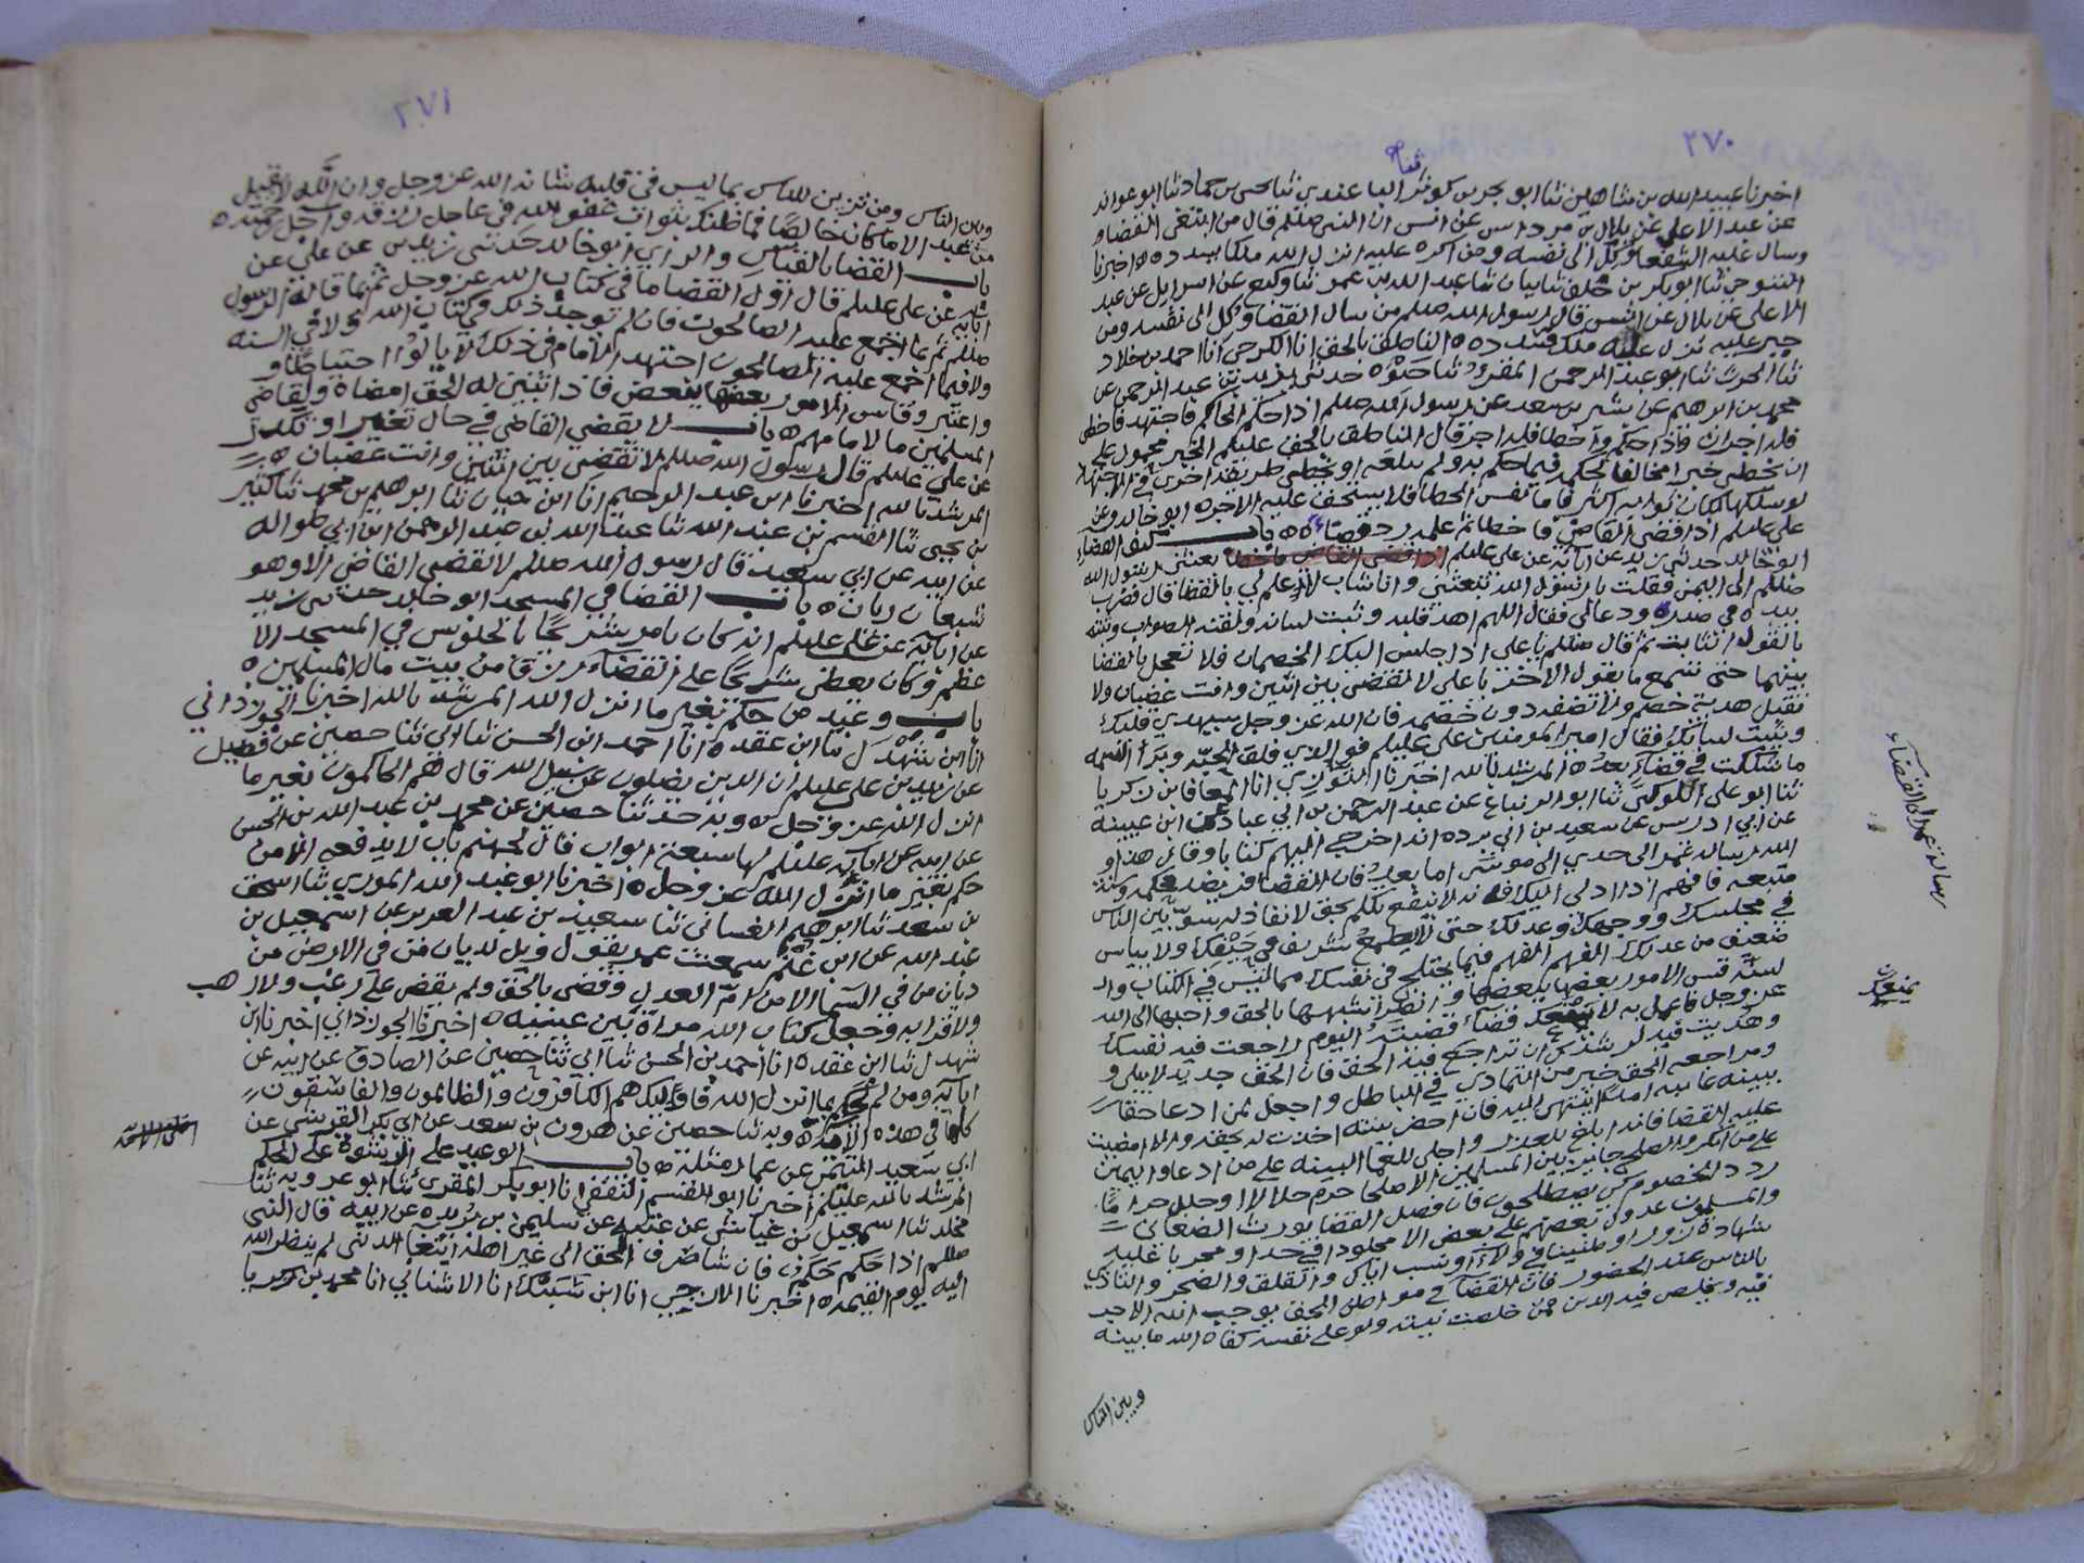 ٢٧٠
اخبرنا عبيد الله بن شاهين ثنا ابو بحر بن كوثر ثنا يحيى بن حماد ثنا ابو عوانه
عن عبد الاعلى عن بلال بن مرداس عن انس ان النبي صللم قال من ابتغى القضا و
وسال عليه الشفعا وكل الى نفسه ومن اكره عليه انزل الله ملكا يسدده ه اخبرنا
التنوخي ثنا ابو بكر بن خلف ثنا بيان ثنا عبد الله بن عمر ثنا وكيع عن اسرايل عن عبد
الاعلى عن بلال عن انس قال رسول الله صللم من سال القضا وكل الى نفسه ومن
جبر عليه نزل عليه ملك فسدده ه الناطق بالحق انا الكرجي انا احمد بن خلاد
ثنا الحرث ثنا ابو عبد الرحمن المقري ثنا حيوه حدثني يزيد بن عبد الرحمن عن
محمد بن ابرهيم عن بشر بن سعد عن رسول الله صللم اذا حكم الحاكم فاجتهد فاخطى
فله اجران واذا حكم واخطا فله اجر قال الناطق بالحق عليلم الخبر محمول على
ان يخطى خبرا مخالفا لحكمه فيما حكم به ولم يبلغه او يخطى طريقه اخرى في الاجتهاد
لو سلكها لكان ثوابه اكثر فاما نفس الخطا فلا يستحق عليه الاجر ه ابو خالد وعن
علي عليلم اذا قضى القاضي فاخطا ثم علم رد قضاءه ه باب كيف القضاء
ابو خالد حدثني زيد عن ابائه عن علي عليلم بعثني رسول الله
صللم الى اليمن فقلت يا رسول الله تبعثني وانا شاب لا علم لي بالقضا قال فضرب
بيده في صدره ودعا لي فقال اللهم اهد قلبه وثبت لسانه ولقنه الصواب وثبته
بالقول الثابت ثم قال صللم يا علي اذا جلس اليك الخصمان فلا تعجل بالقضا
بينهما حتى تسمع ما يقول الاخر يا علي لا تقضي بين اثنين وانت غضبان ولا
تقبل هدية خصم ولا تضفه دون خصمه فان الله عز وجل سيهدي قلبك
ويثبت لسانك فقال امير المومنين علي عليلم فو الذي فلق الحبه وبرأ النسمه
ما شككت في قضاء بعد ه المرشد بالله اخبرنا التوزي انا المعافا بن زكريا
ثنا ابو علي الكوكبي ثنا ابو الزنباع عن عبد الرحمن بن ابي عباد عن ابن عيينه
عن ابي ادريس عن سعيد بن ابي برده انه اخرج اليهم كتابا وقال هذا و
الله رساله عمر الى جدي ابي موسى اما بعد فان القضا فريضه محكمه وسنة
متبعه فافهم اذا ادلي اليك فانه لا ينفع تكلم بحق لا نفاذ له سو بين الناس
في مجلسك ووجهك وعدلك حتى لا يطمع شريف في حيفك ولا يياس
ضعيف من عدلك الفهم الفهم فيما يختلج في نفسك مما ليس في الكتاب والـ
لسنة قس الامور بعضها ببعضها وانظر اشبهها بالحق واحبها الى الله
عز وجل فاعمل به لا يمنعك قضاء قضيته اليوم راجعت فيه نفسك
وهديت فيه لرشدك ان تراجع فيه الحق فان الحق جديد لا يبلى و
ومراجعه الحق خير من التمادي في الباطل واجعل لمن ادعا حقا
ببينه غايبه امدا ينتهي اليه فان احضر بينته اخذت له بحقه والا امضيت
عليه القضا فانه ابلغ للعذر واجلى للعما البينه على من ادعا واليمين
على من انكر والصلح جايز بين المسلمين الا صلحا حرم حلالا او حلل حراما
ردد الخصوم كي يصطلحون فان فصل القضا يورث الضغائن
والمسلمون عدول بعضهم على بعض الا مجلودا في حد او مجربا عليه
شهادة زور او ظنينا في ولاء او نسب اياك والقلق والضجر والتاذي
بالناس عند الحضور فان القضا في مواطن الحق يوجب الله الاجر
فيه ويخلص فيه الدين فمن خلصت نيته ولو على نفسه كفاه الله ما بينه
وبين الناس
رسالة عمر في القضاء
يمنعك
٢٧١
وبين الناس ومن تزين للناس بما ليس في قلبه شانه الله عز وجل وان الله لا يقبل
من عبد الا ما كان خالصا فما ظنك بثواب غفو الله في عاجل رزقه واجل رحمته ه
باب القضا بالقياس والراي ابو خالد حدثني زيد بن علي عن
ابائه عن علي عليلم قال اول القضا ما في كتاب الله عز وجل ثم ما قاله الرسول
صللم ثم ما اجمع عليه الصالحون فان لم توجد ذلك في كتاب الله ولا في السنه
ولا فيما اجمع عليه الصالحون اجتهد الامام في ذلك لا يالوا احتياطا و
واعتبر وقاس الامور بعضها ببعض فاذا تبين له الحق امضاه ولقاضي
المسلمين ما لامامهم ه باب لا يقضي القاضي في حال تغير او تكدر
عن علي عليلم قال رسول الله صللم لا تقضي بين اثنين وانت غضبان ه
المرشد بالله اخبرنا ابن عبد الرحيم انا ابن حيان ثنا ابرهيم بن محمد ثنا كثير
بن يحيى ثنا القسم بن عبد الله ثنا عبد الله بن عبد الرحمن ابن ابي طواله
عن ابيه عن ابي سعيد قال رسول الله صللم لا تقضي القاضي الا وهو
شبعان ريان ه باب القضا في المسجد ابو خالد حدثني زيد
عن ابائه عن علي عليلم انه كان يامر شريحا بالجلوس في المسجد الا
عظم وكان يعطي شريحا على القضاء رزقا من بيت مال المسلمين ه
باب وعيد من حكم بغير ما انزل الله المرشد بالله اخبرنا الجوزذاني
انا ابن شهدل ثنا ابن عقده انا احمد ابن الحسن ثنا ابي ثنا حصين عن فضيل
عن زيد بن علي عليلم ان الذين يضلون عن سبيل الله قال فهم الحاكمون بغير ما
انزل الله عز وجل ه وبه حدثنا حصين عن محمد بن عبد الله بن الحسن
عن ابيه عن ابائه عليلم لها سبعة ابواب قال لجهنم باب لا يدفعه الا من
حكم بغير ما انزل الله عز وجل ه اخبرنا ابو عبد الله الموري ثنا اسحق
بن سعد ثنا ابرهيم الغساني ثنا سعيد بن عبد العزيز عن اسمعيل بن
عبد الله عن ابن غنم سمعت عمر يقول ويل لديان من في الارض من
ديان من في السما الا من ام العدل وقضى بالحق ولم يقض على رغب ولا رهب
ولا قرابه وجعل كتاب الله مراة بين عينيه ه اخبرنا الجوزذاني اخبرنا ابن
شهدل ثنا ابن عقده انا احمد بن الحسن ثنا ابي ثنا حصين عن الصادق عن ابيه عن
ابائه ومن لم يحكم بما انزل الله فاولئك هم الكافرون والظالمون والفاسقون
كلها في هذه الامه ه وبه ثنا حصين عن هرون بن سعد عن ابي بكر القرشي عن
ابي سعيد المتيمي عن عمار مثله ه باب الوعيد على الرشوة على الحكم
المرشد بالله عليلم اخبرنا ابو القسم الثقفي انا ابو بكر المقري ثنا ابو عروبه ثنا
مخلد ثنا اسمعيل بن عياش عن عتبه عن سليمن بن بريده عن ابيه قال النبي
صللم اذا حكم بحكم فان شا صرف الحق الى غير اهله ابتغا الدنى لم ينظر الله
اليه يوم القيمه ه اخبرنا الازجي انا ابن شبنك انا الاشناني انا محمد بن زكريا